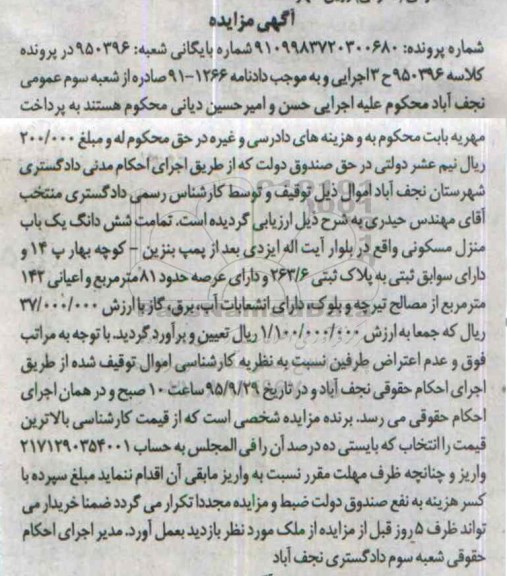 آگهی مزایده
شماره پرونده: ۹۱۰۹۹۸۳۷۲۰۳۰۰۶۸۰ شماره بایگانی شعبه: ۹۵۰۳۹۶ در پرونده
کلاسه ۹۵۰۳۹۶ ح ۳ اجرایی و به موجب دادنامه ۱۲۶۶-۹۱ صادره از شعبه سوم عمومی
نجف آباد محکوم علیه اجرایی حسن و امیرحسین دیانی محکوم هستند به پرداخت
مهریه بابت محکوم به و هزینه های دادرسی و غیره در حق محکوم له و مبلغ ۲۰۰/۰۰۰
ریال نیم عشر دولتی در حق صندوق دولت که از طریق اجرای احکام مدنی دادگستری
شهرستان نجف آباد اموال ذیل توقیف و توسط کارشناس رسمی دادگستری منتخب
آقای مهندس حیدری به شرح ذیل ارزیابی گردیده است. تمامت شش دانگ یک باب
منزل مسکونی واقع در بلوار آیت اله ایزدی بعد از پمپ بنزین - کوچه بهار پ ۱۴ و
دارای سوابق ثبتی به پلاک ثبتی ۲۶۳/۶ و دارای عرصه حدود ۸۱ مترمربع و اعیانی ۱۴۲
مترمربع از مصالح تیرچه و بلوک دارای انشعابات آب، برق، گاز با ارزش ۳۷/۰۰۰/۰۰۰
ریال که جمعا به ارزش ۱/۱۰۰/۰۰۰/۰۰۰ ریال تعیین و برآورد گردید. با توجه به مراتب
فوق و عدم اعتراض طرفین نسبت به نظریه کارشناسی اموال توقیف شده از طریق
اجرای احکام حقوقی نجف آباد و در تاریخ ۹۵/۹/۲۹ ساعت ۱۰ صبح و در همان اجرای
احکام حقوقی می رسد. برنده مزایده شخصی است که از قیمت کارشناسی بالاترین
قیمت را انتخاب که بایستی ده درصد آن را فی المجلس به حساب ۲۱۷۱۲۹۰۳۵۴۰۰۱
واریز و چنانچه ظرف مهلت مقرر نسبت به واریز مابقی آن اقدام ننماید مبلغ سپرده با
کسر هزینه به نفع صندوق دولت ضبط و مزایده مجددا تکرار می گردد ضمنا خریدار می
تواند ظرف ۵ روز قبل از مزایده از ملک مورد نظر بازدید بعمل آورد. مدیر اجرای احکام
حقوقی شعبه سوم دادگستری نجف آباد